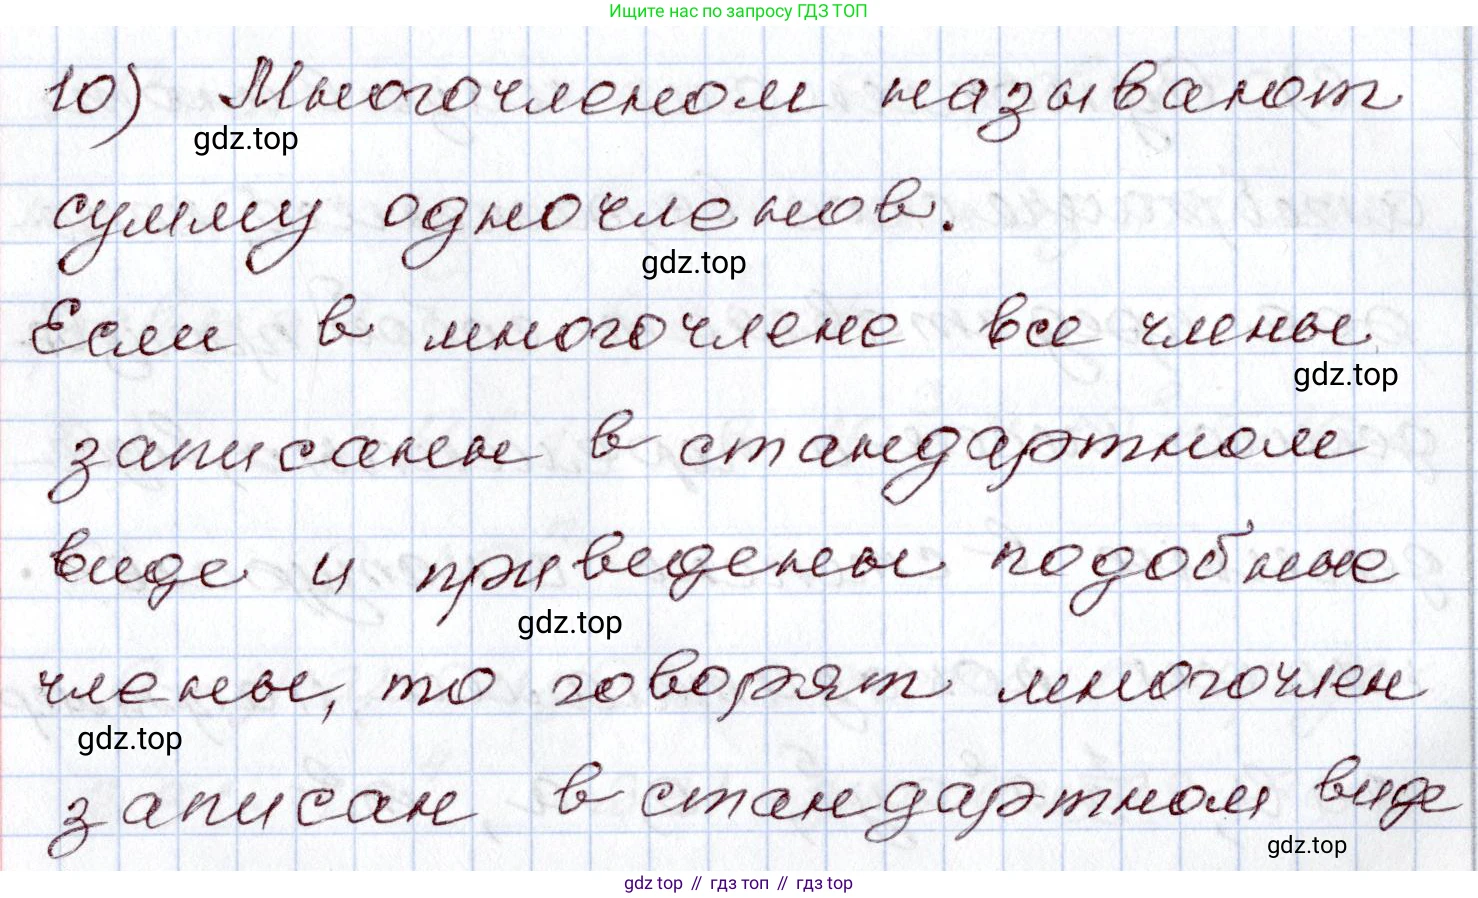 Ищите нас по запросу ГДЗ ТОП
10) Многочленом называют
gdz.top
сумму одночленов.
gdz.top
Если в многочлене все члены
gdz.top
записаны в стандартном
виде и приведены подобные
gdz.top
члены, то говорят многочлен
gdz.top
записан в стандартном виде
gdz.top
gdz top // гдз топ // гдз top